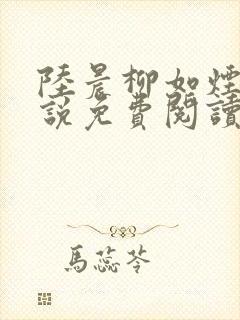 陸晨柳如煙
說免費閱讀
馬蕊苓